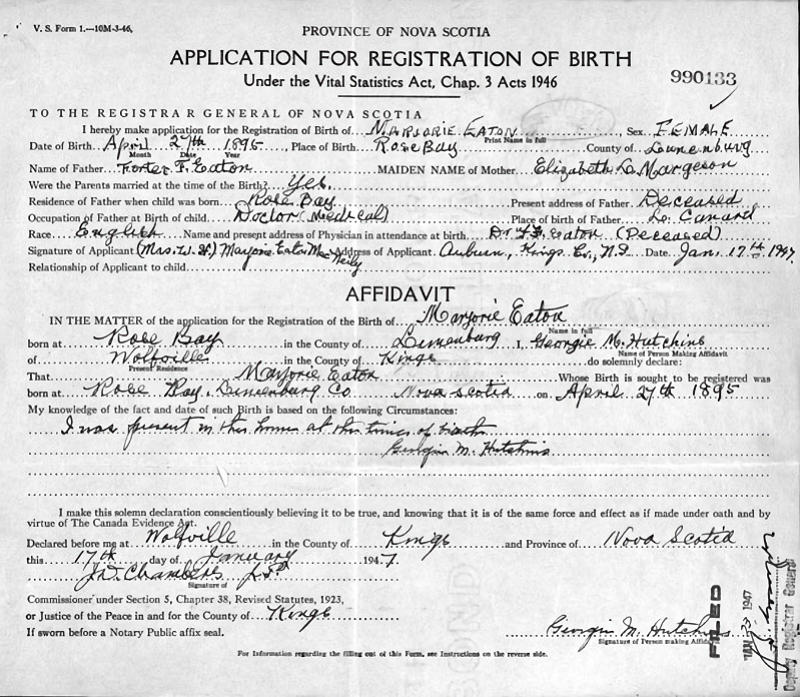 V. S. Form 1.—10M-3-46,
PROVINCE OF NOVA SCOTIA
APPLICATION FOR REGISTRATION OF BIRTH
Under the Vital Statistics Act, Chap. 3 Acts 1946
990133
TO THE REGISTRAR GENERAL OF NOVA SCOTIA
I hereby make application for the Registration of Birth of MARJORIE EATON, Sex FEMALE
Print Name in full
Date of Birth April 27th 1895, Place of Birth Rose Bay County of Lunenburg
Month Date Year
Name of Father Foster F. Eaton MAIDEN NAME of Mother Elizabeth L. Margeson
Were the Parents married at the time of the Birth? Yes.
Residence of Father when child was born Rose Bay Present address of Father Deceased
Occupation of Father at Birth of child Doctor (Medical) Place of birth of Father Canard
Race English Name and present address of Physician in attendance at birth Dr F.F. Eaton (Deceased)
Signature of Applicant (Mrs. W.H.) Marjorie Eaton MacNeily Address of Applicant Auburn, Kings Co., N.S Date Jan. 17th 1947.
Relationship of Applicant to child
AFFIDAVIT
IN THE MATTER of the application for the Registration of the Birth of Marjorie Eaton
Name in full
born at Rose Bay in the County of Lunenburg I, Georgie M. Hutchins
Name of Person Making Affidavit
of Wolfville in the County of Kings do solemnly declare:
Present Residence
That Marjorie Eaton Whose Birth is sought to be registered was
born at Rose Bay, Lunenburg Co Nova Scotia on April 27th 1895
My knowledge of the fact and date of such Birth is based on the following Circumstances:
I was present in the home at the time of birth
Georgie M. Hutchins
I make this solemn declaration conscientiously believing it to be true, and knowing that it is of the same force and effect as if made under oath and by
virtue of The Canada Evidence Act.
Declared before me at Wolfville in the County of Kings and Province of Nova Scotia
this 17th day of January 1947
J.W. Chambers J.P.
Signature of
Commissioner under Section 5, Chapter 38, Revised Statutes, 1923,
or Justice of the Peace in and for the County of Kings
If sworn before a Notary Public affix seal.
Georgie M. Hutchins
Signature of Person making Affidavit
For Information regarding the filling out of this Form, see Instructions on the reverse side.
FILED
JAN 23 1947
Deputy Registrar General